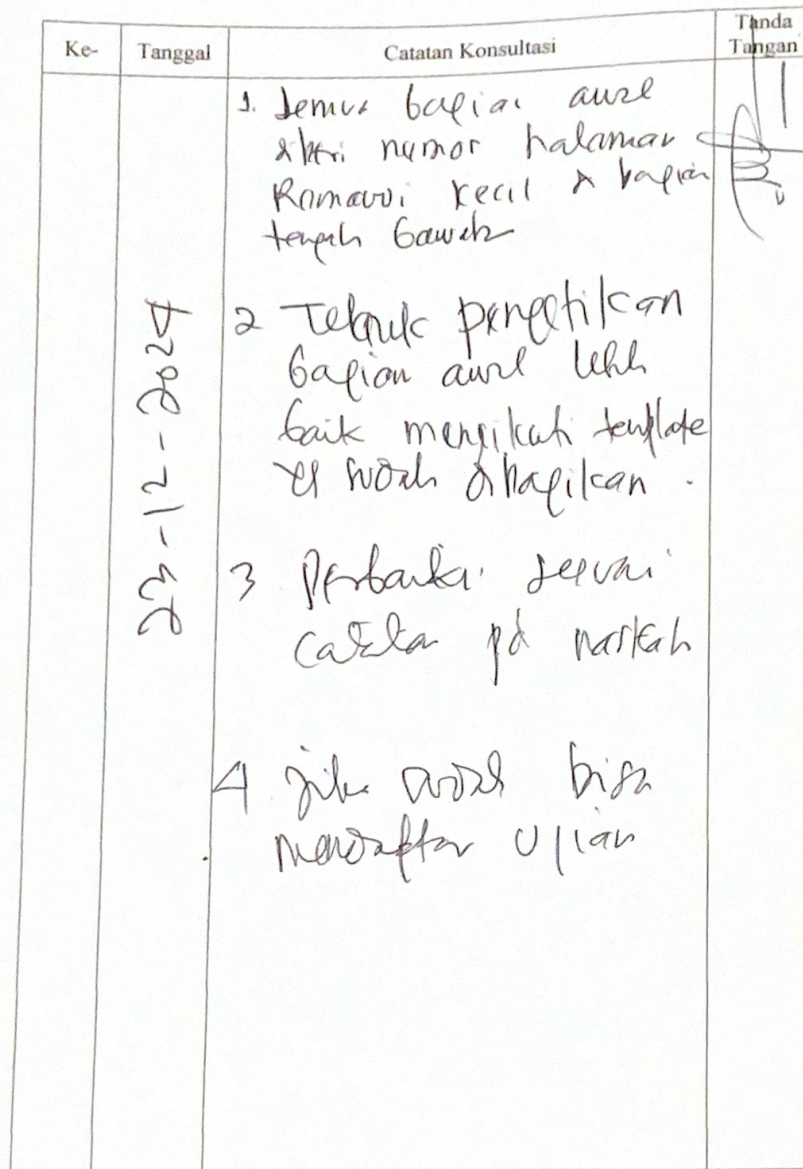 Ke-
Tanggal
Catatan Konsultasi
Tanda
Tangan
23-12-2024
1. Semua bagian awal
diberi nomor halaman
Romawi kecil di bagian
tengah bawah
2 Teknik pengetikan
bagian awal lebih
baik mengikuti template
yg sudah dibagikan.
3 Perbaiki sesuai
catatan pd naskah
4 jika sudah bisa
mendaftar Ujian